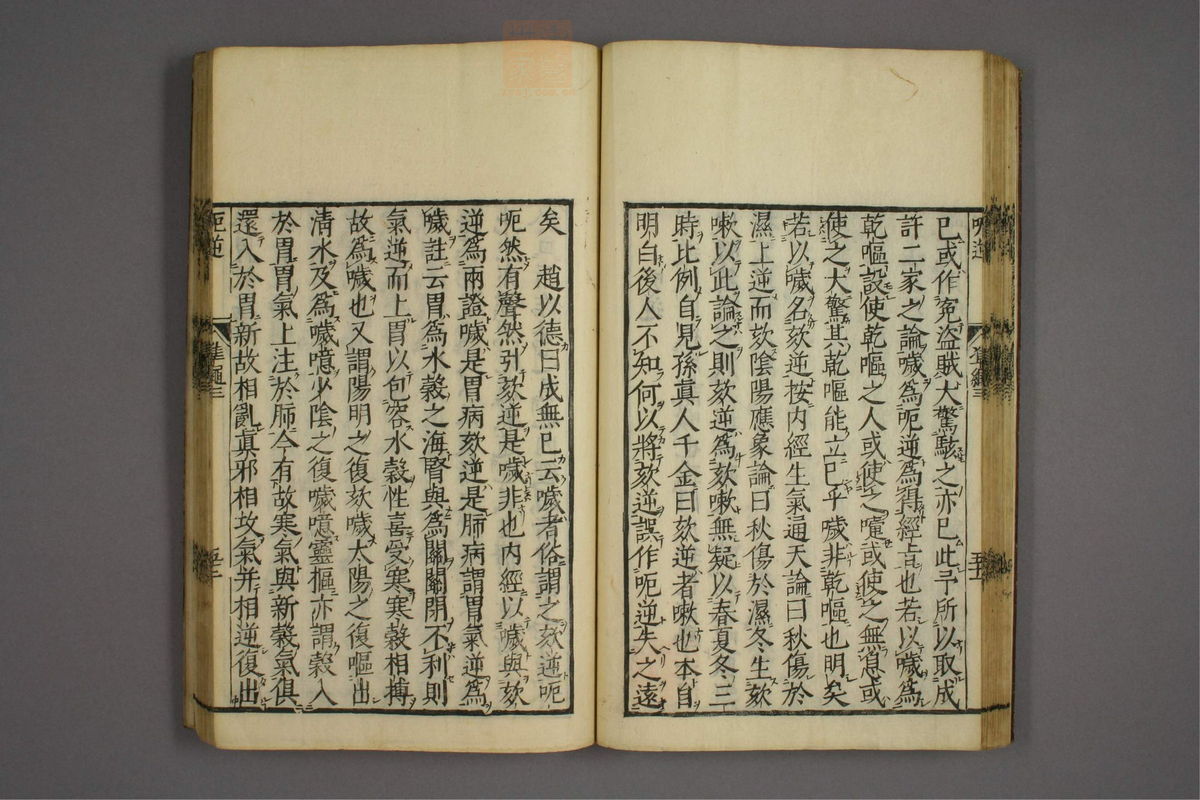 已或作冤盜賊大驚駭之亦已此予所以取成
許二家之論噦爲呃逆爲得經㫖也若以噦爲
乾嘔設使乾嘔之人或使之嚏或使之無息或
使之大驚其乾嘔能立已乎噦非乾嘔也明矣
若以噦名欬逆按内經生氣通天論曰秋傷於
濕上逆而欬陰陽應象論曰秋傷於濕冬生欬
嗽以此論之則欬逆爲欬嗽無疑以春夏冬三
時比例自見孫眞人千金曰欬逆者嗽也本自
明白後人不知何以將欬逆誤作呃逆失之遠
矣　趙以德曰成無已云噦者俗謂之欬逆呃
呃然有聲然引欬逆是噦非也内經以噦與欬
逆爲兩證噦是胃病欬逆是肺病謂胃氣逆爲
噦註云胃爲水穀之海腎與爲關關閉不利則
氣逆而上胃以包容水穀性喜受寒寒穀相搏
故爲噦也又謂陽明之復欬噦太陽之復嘔出
淸水及爲噦噫少陰之復噦噫靈樞亦謂穀入
於胃胃氣上注於肺今有故寒氣與新穀氣俱
還入於胃新故相亂眞邪相攻氣并相逆復出
呃逆
準繩三